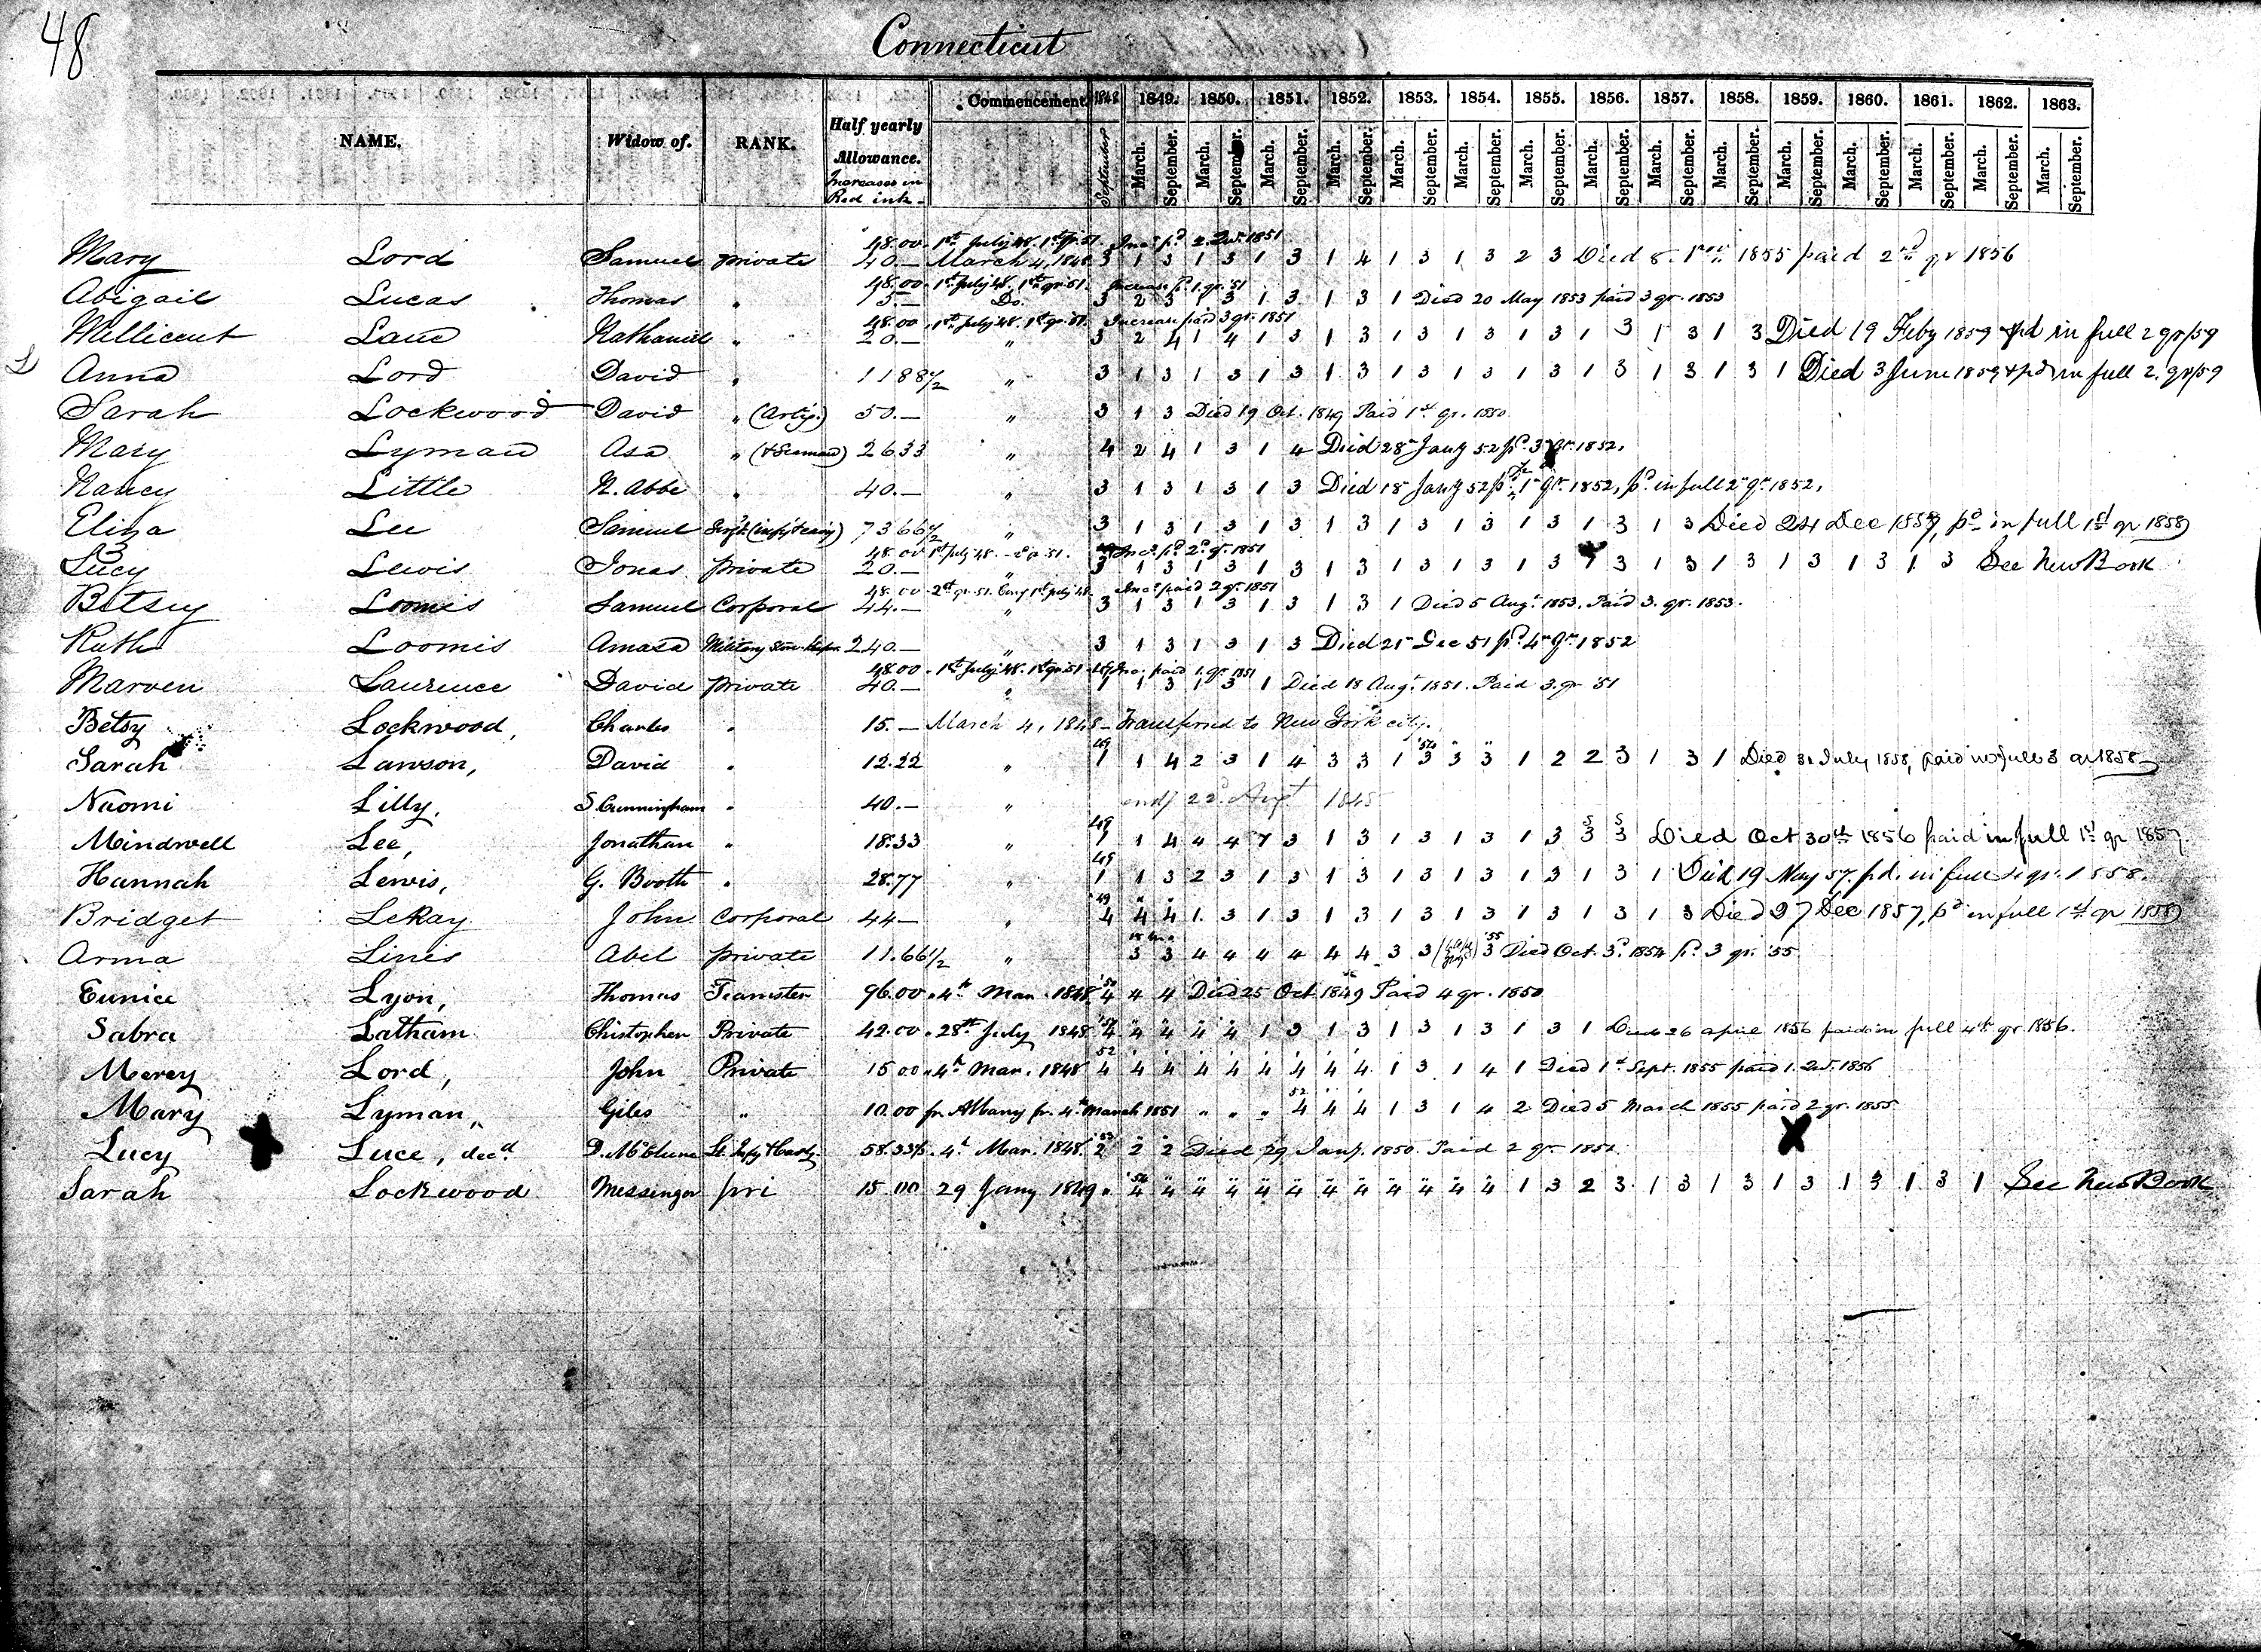 48
Connecticut
NAME. Widow of. RANK. Half yearly Allowance. Increases in Red ink. Commencement 1848 1849. 1850. 1851. 1852. 1853. 1854. 1855. 1856. 1857. 1858. 1859. 1860. 1861. 1862. 1863.
September March. September. March. September. March. September. March. September. March. September. March. September. March. September. March. September. March. September. March. September. March. September. March. September. March. September. March. September. March. September.
48.00 1st July 48. 1st qr. 51. Inc. pd. 2. Qr. 1851
Mary Lord Samuel private 40.— March 4, 1848 3 1 3 1 3 1 3 1 4 1 3 1 3 2 3 Died 8. 1855 paid 2nd qr 1856
48.00 1st July 48. 1st qr. 51. Increase pd. 1. qr. 51
Abigail Lucas Thomas " 15.— Do. 3 2 3 1 3 1 3 1 3 1 Died 20 May 1853 paid 3 qr. 1853
48.00 1st July 48. 1st qr. 51. Increase paid 3 qr. 1851
Millicent Lane Nathaniel " 20.— " 3 2 4 1 4 1 3 1 3 1 3 1 3 1 3 1 3 1 3 1 3 Died 19 Feby 1859 & pd in full 2 qr/59
L Anna Lord David " 11 88 1/2 " 3 1 3 1 3 1 3 1 3 1 3 1 3 1 3 1 3 1 3 1 3 1 Died 3 June 1859 & pd in full 2. qr/59
Sarah Lockwood David " (Arty.) 50.— " 3 1 3 Died 19 Oct. 1849 Paid 1st qr. 1850
Mary Lyman Asa " 26.33 " 4 2 4 1 3 1 4 Died 28 Jany 52 pd. 3 qr. 1852.
Nancy Little N. Abbe " 40.— " 3 1 3 1 3 1 3 Died 18 Jany 52 pd. 1 qr. 1852, pd. in full 2 qr. 1852.
Eliza Lee Samuel 73 66 1/2 " 3 1 3 1 3 1 3 1 3 1 3 1 3 1 3 1 3 1 3 Died 24 Dec 1857, pd in full 1st qr 1858
48.00 1st July 48. Inc. pd. 2d. qr. 1851
Lucy Lewis Jonas private 20.— " 3 1 3 1 3 1 3 1 3 1 3 1 3 1 3 1 3 1 3 1 3 1 3 1 3 1 3 See New Book
48.00 2d qr. 51. Comg 1st July 48. Inc. paid 2 qr. 1851
Betsey Loomis Samuel Corporal 44.— " 3 1 3 1 3 1 3 1 3 1 Died 5 Augt. 1853. Paid 3. qr. 1853.
Ruth Loomis Amasa Military Store keeper 240.— " 3 1 3 1 3 1 3 Died 21 Dec 51 pd. 4 qr. 1852
48.00 1st July 48. 1st qr. 51 49 Inc. paid 1. qr. 1851
Marven Laurence David private 40.— " 1 1 3 1 3 1 Died 18 Augt. 1851. Paid 3. qr 51
Betsy Lockwood, Charles " 15.— March 4, 1848 Transferred to New York city.
Sarah Lawson, David " 12.22 " 49 1 1 4 2 3 1 4 3 3 1 '54 3 3 3 1 2 2 3 1 3 1 Died 31 July 1858, paid in full 3 qr 1858
Naomi Lilly, S. Cunningham " 40.— " 22d Augt 1848
Mindwell Lee, Jonathan " 18.33 " 49 1 1 4 4 4 7 3 1 3 1 3 1 3 1 3 3 3 Died Oct 30th 1856 paid in full 1st qr 1857.
Hannah Lewis, G. Booth " 28.77 " 49 1 1 3 2 3 1 3 1 3 1 3 1 3 1 3 1 3 1 Died 19 May 57. pd. in full 1 qr. 1858.
Bridget LeRay John Corporal 44— " 49 4 4 4 1 3 1 3 1 3 1 3 1 3 1 3 1 3 1 3 Died 27 Dec 1857, pd in full 1st qr 1858
Anna Lines Abel private 11.66 1/2 " 3 3 4 4 4 4 4 4 3 3 '55 3 Died Oct. 3d. 1854 pd. 3 qr. '55
Eunice Lyon, Thomas Teamster 96.00 4th Mar. 1848 '50 4 4 4 Died 25 Oct 1849 Paid 4 qr. 1850
Sabra Latham Christopher Private 42.00 28th July 1848 4 4 4 4 4 1 3 1 3 1 3 1 3 1 3 1 Died 26 april 1856 paid in full 4th qr 1856.
Mercy Lord, John Private 15 00 4th Mar. 1848 52 4 4 4 4 4 4 4 4 4 1 3 1 4 1 Died 1st Sept. 1855 paid 1. Qr. 1856
Mary Lyman, Giles " 10.00 fr. Albany fr. 4th March 1851 " " " 52 4 4 4 1 3 1 4 2 Died 5 March 1855 paid 2 qr. 1855
Lucy Luce, decd. D. McClure Lt. 58.33 1/3 4th Mar. 1848. 2 2 2 Died 29 Jany. 1850. Paid 2 qr. 1851
Sarah Lockwood Messinger pri 15.00 29 Jany 1849 " '54 4 4 4 4 4 4 4 4 4 4 4 4 1 3 2 3 1 3 1 3 1 3 1 3 1 3 1 See New Book